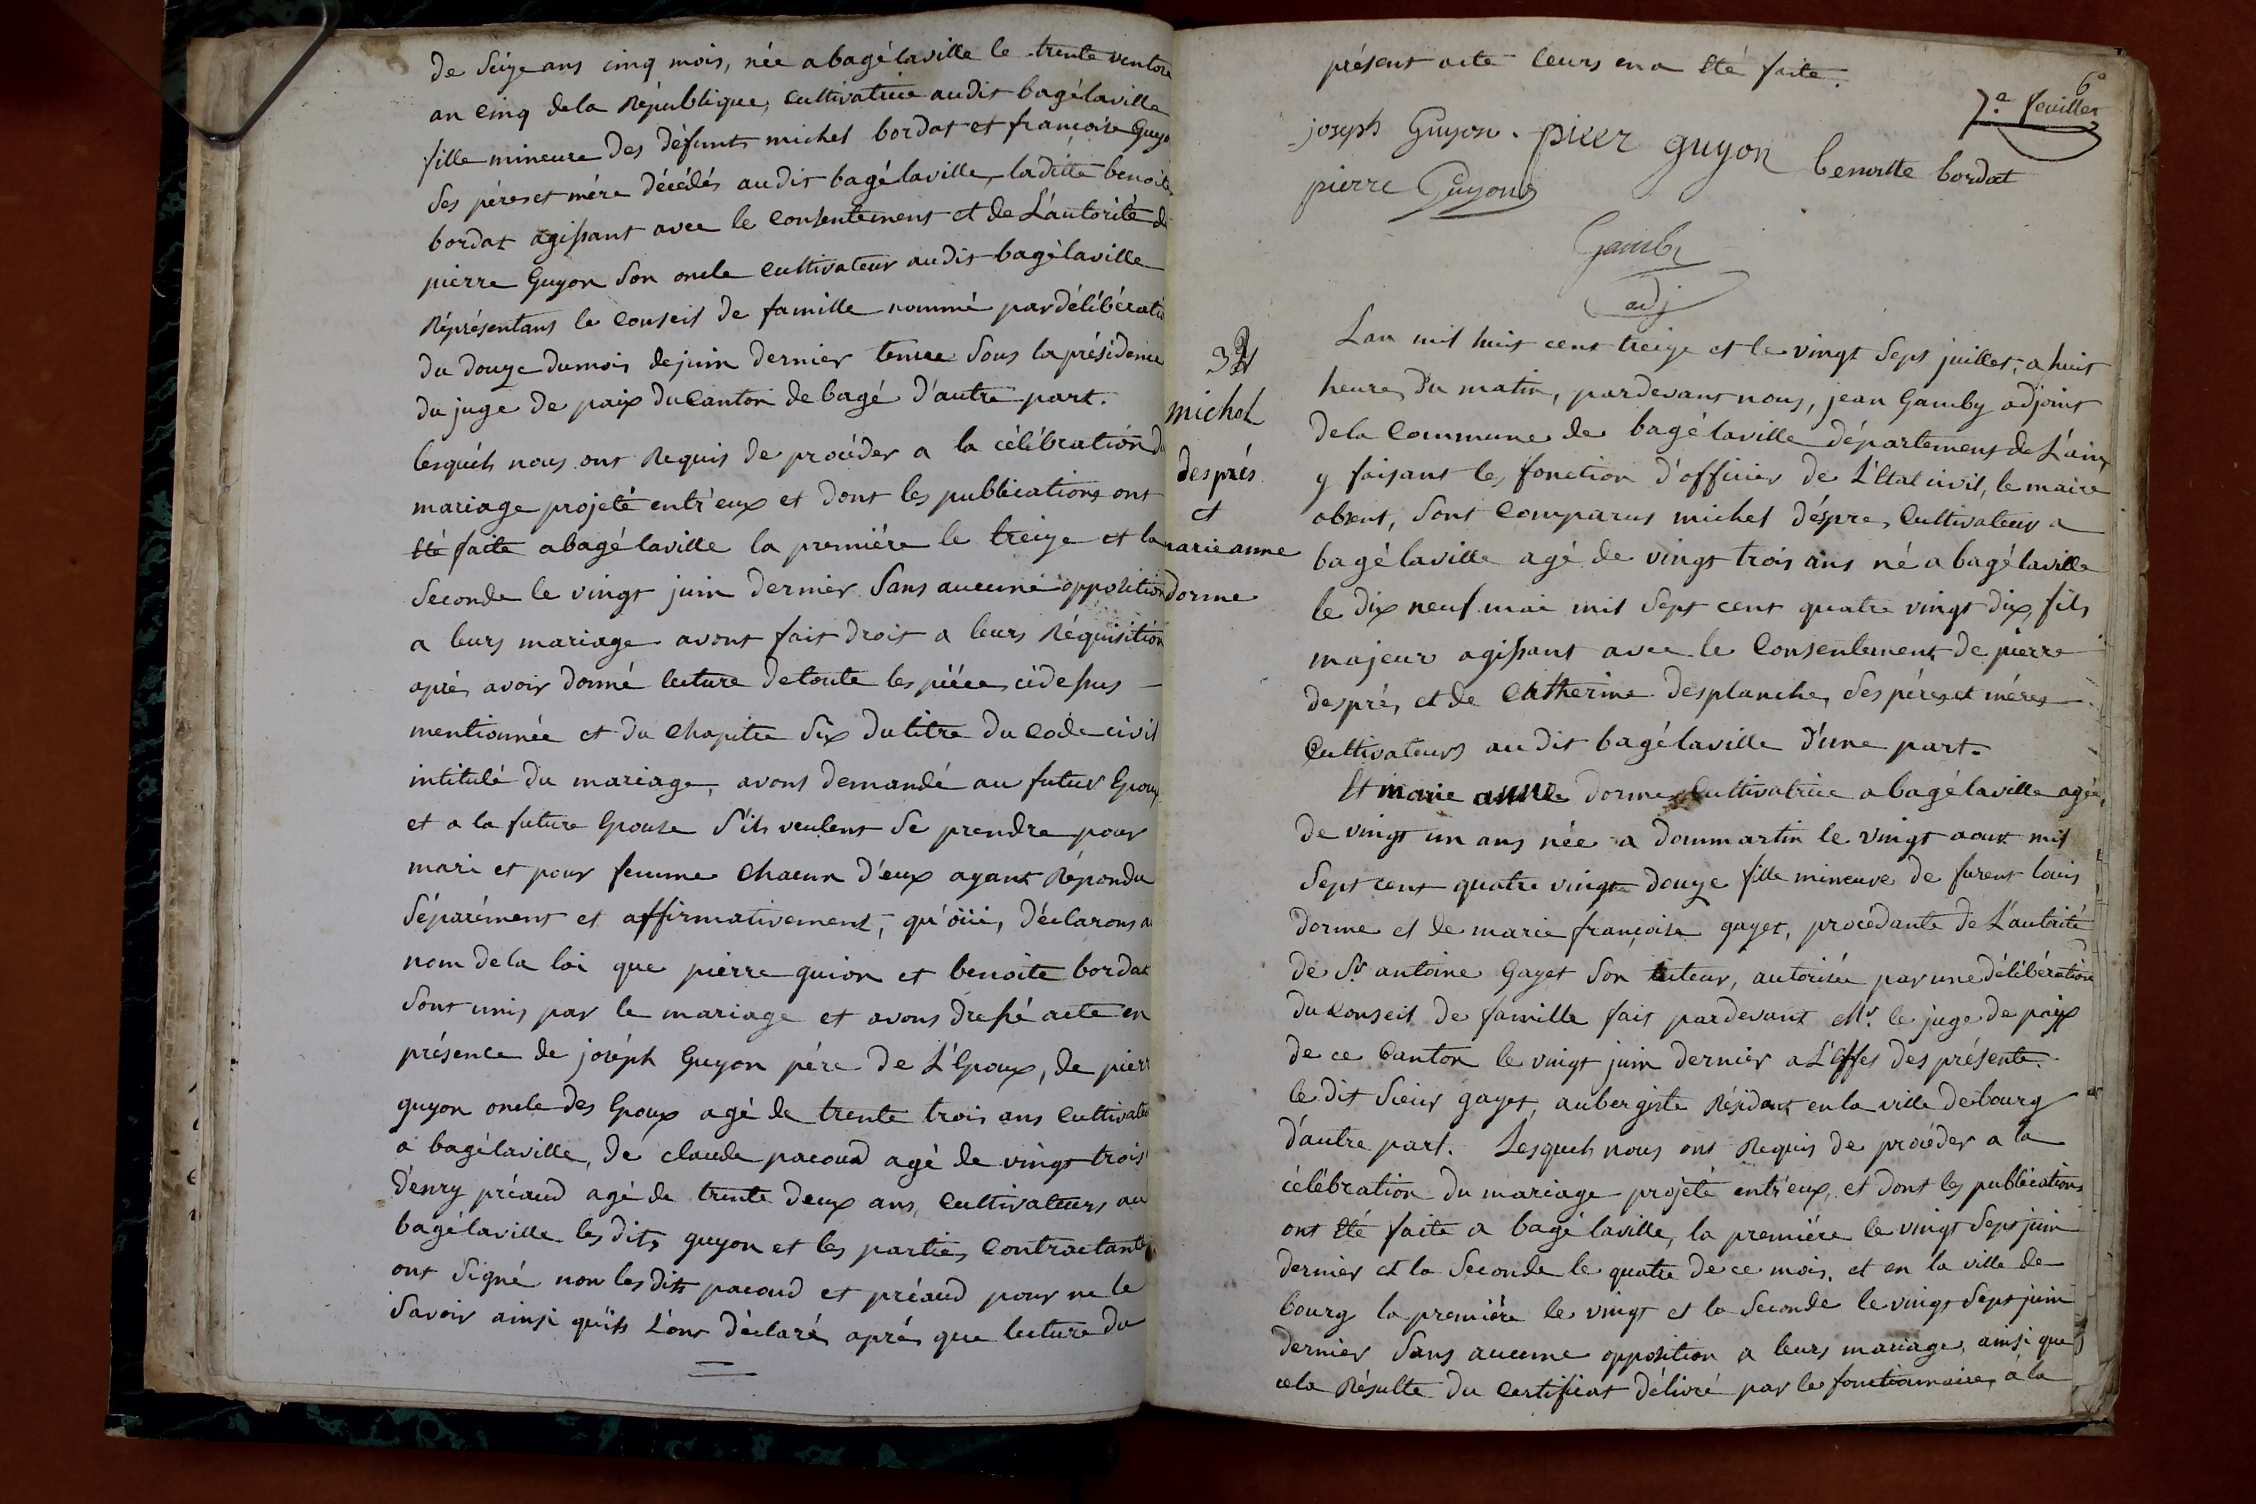 de Seize ans cinq mois, née a bagé laville le trente ventose
an cinq de la République, Cultivatrice audit bagélaville
fille mineure des défunts michel bordat et francoise Guyo
Ses péres et mére décédés audit bagélaville, la ditte benoite
bordat agissant avec le Consentement et de L'autorité de
pierre Guyon Son oncle Cultivateur audit bagélaville
Réprésentans le Conseil de famille nommé par délibératio
du douze du mois de juin dernier tenue Sous la présidence
du juge de paix du Canton de bagé d'autre part.
lesquels nous ont Requis de procéder a la célébration du
mariage projeté entr'eux et dont les publications ont
été faite a bagé laville la premiére le treize et la
Seconde le vingt juin dernier Sans aucune opposition
a leurs mariage avons fait droit a leurs Réquisition
aprés avoir donné lecture de toute les piéces cidessus
mentionnée et du Chapitre Six du titre du Code civil
intitulé du mariage, avons demandé au futur Epoux
et a la future Epouse S'ils veulent Se prendre pour
mari et pour femme Chacun d'eux ayant Répondu
Séparément et affirmativement, qu'oüi, déclarons au
nom de la loi que pierre guion et benoite bordat
Sont unis par le mariage et avons dressé acte en
présence de joséph Guyon pére de L'Epoux, de pierr
guyon oncle des Epoux agé de trente trois ans Cultivateu
a bagélaville, de claude pacoud agé de vingt trois
d'enry préaud agé de trente deux ans, Cultivateurs au
bagélaville les dits guyon et les parties Contractantes
ont Signé non les dits pacoud et préaud pour ne le
Savoir ainsi qu'ils L'ont déclaré aprés que lecture du
présent acte leurs en a été faite.
6e
7.e feuillet
joseph Guyon. pier guyon benoitte bordat
pierre Guyon
Gamby
adj
michel
després
et
marie anne
dorme
Lan mil huit cent treize et le vingt Sept juillet, a huit
heure du matin, pardevant nous, jean Gamby adjoint
de la Commune de bagé laville département de L'ain,
y faisant les fonction d'officier de L'état civil, le maire
absent, Sont Comparus michel déspres, Cultivateur a
bagé laville agé de vingt trois ans né a bagé laville
le dix neuf mai mil Sept cent quatre vingt dix, fils
majeur agissant avec le Consentement de pierre
després, et de Catherine desplanche, Ses péres et méres
Cultivateurs au dit bagé laville d'une part.
Et marie anne dorme Cultivatrice a bagé laville agée,
de vingt un ans née a dommartin le vingt aout mil
Sept cent quatre vingt douze fille mineure de furent louis
dorme et de marie françoise gayet, procédante de L'autorité
de Sr. antoine Gayet Son tuteur, autorisée par une délibération
du Conseil de famille fait pardevant Mr. le juge de paix
de ce Canton le vingt juin dernier a L'effet des présente.
le dit Sieur gayet, aubergiste Résidant en la ville de bourg
d'autre part. Lesquels nous ont Requis de procéder a la
célébration du mariage projeté entr'eux, et dont les publications
ont été faite a bagé laville, la premiére le vingt Sept juin
dernier et la Seconde le quatre de ce mois, et en la ville de
bourg la premiére le vingt et la Seconde le vingt Sept juin
dernier Sans aucune opposition a leurs mariage, ainsi que
cela Résulte du Certificat délivré par le fonctionnaire, à la